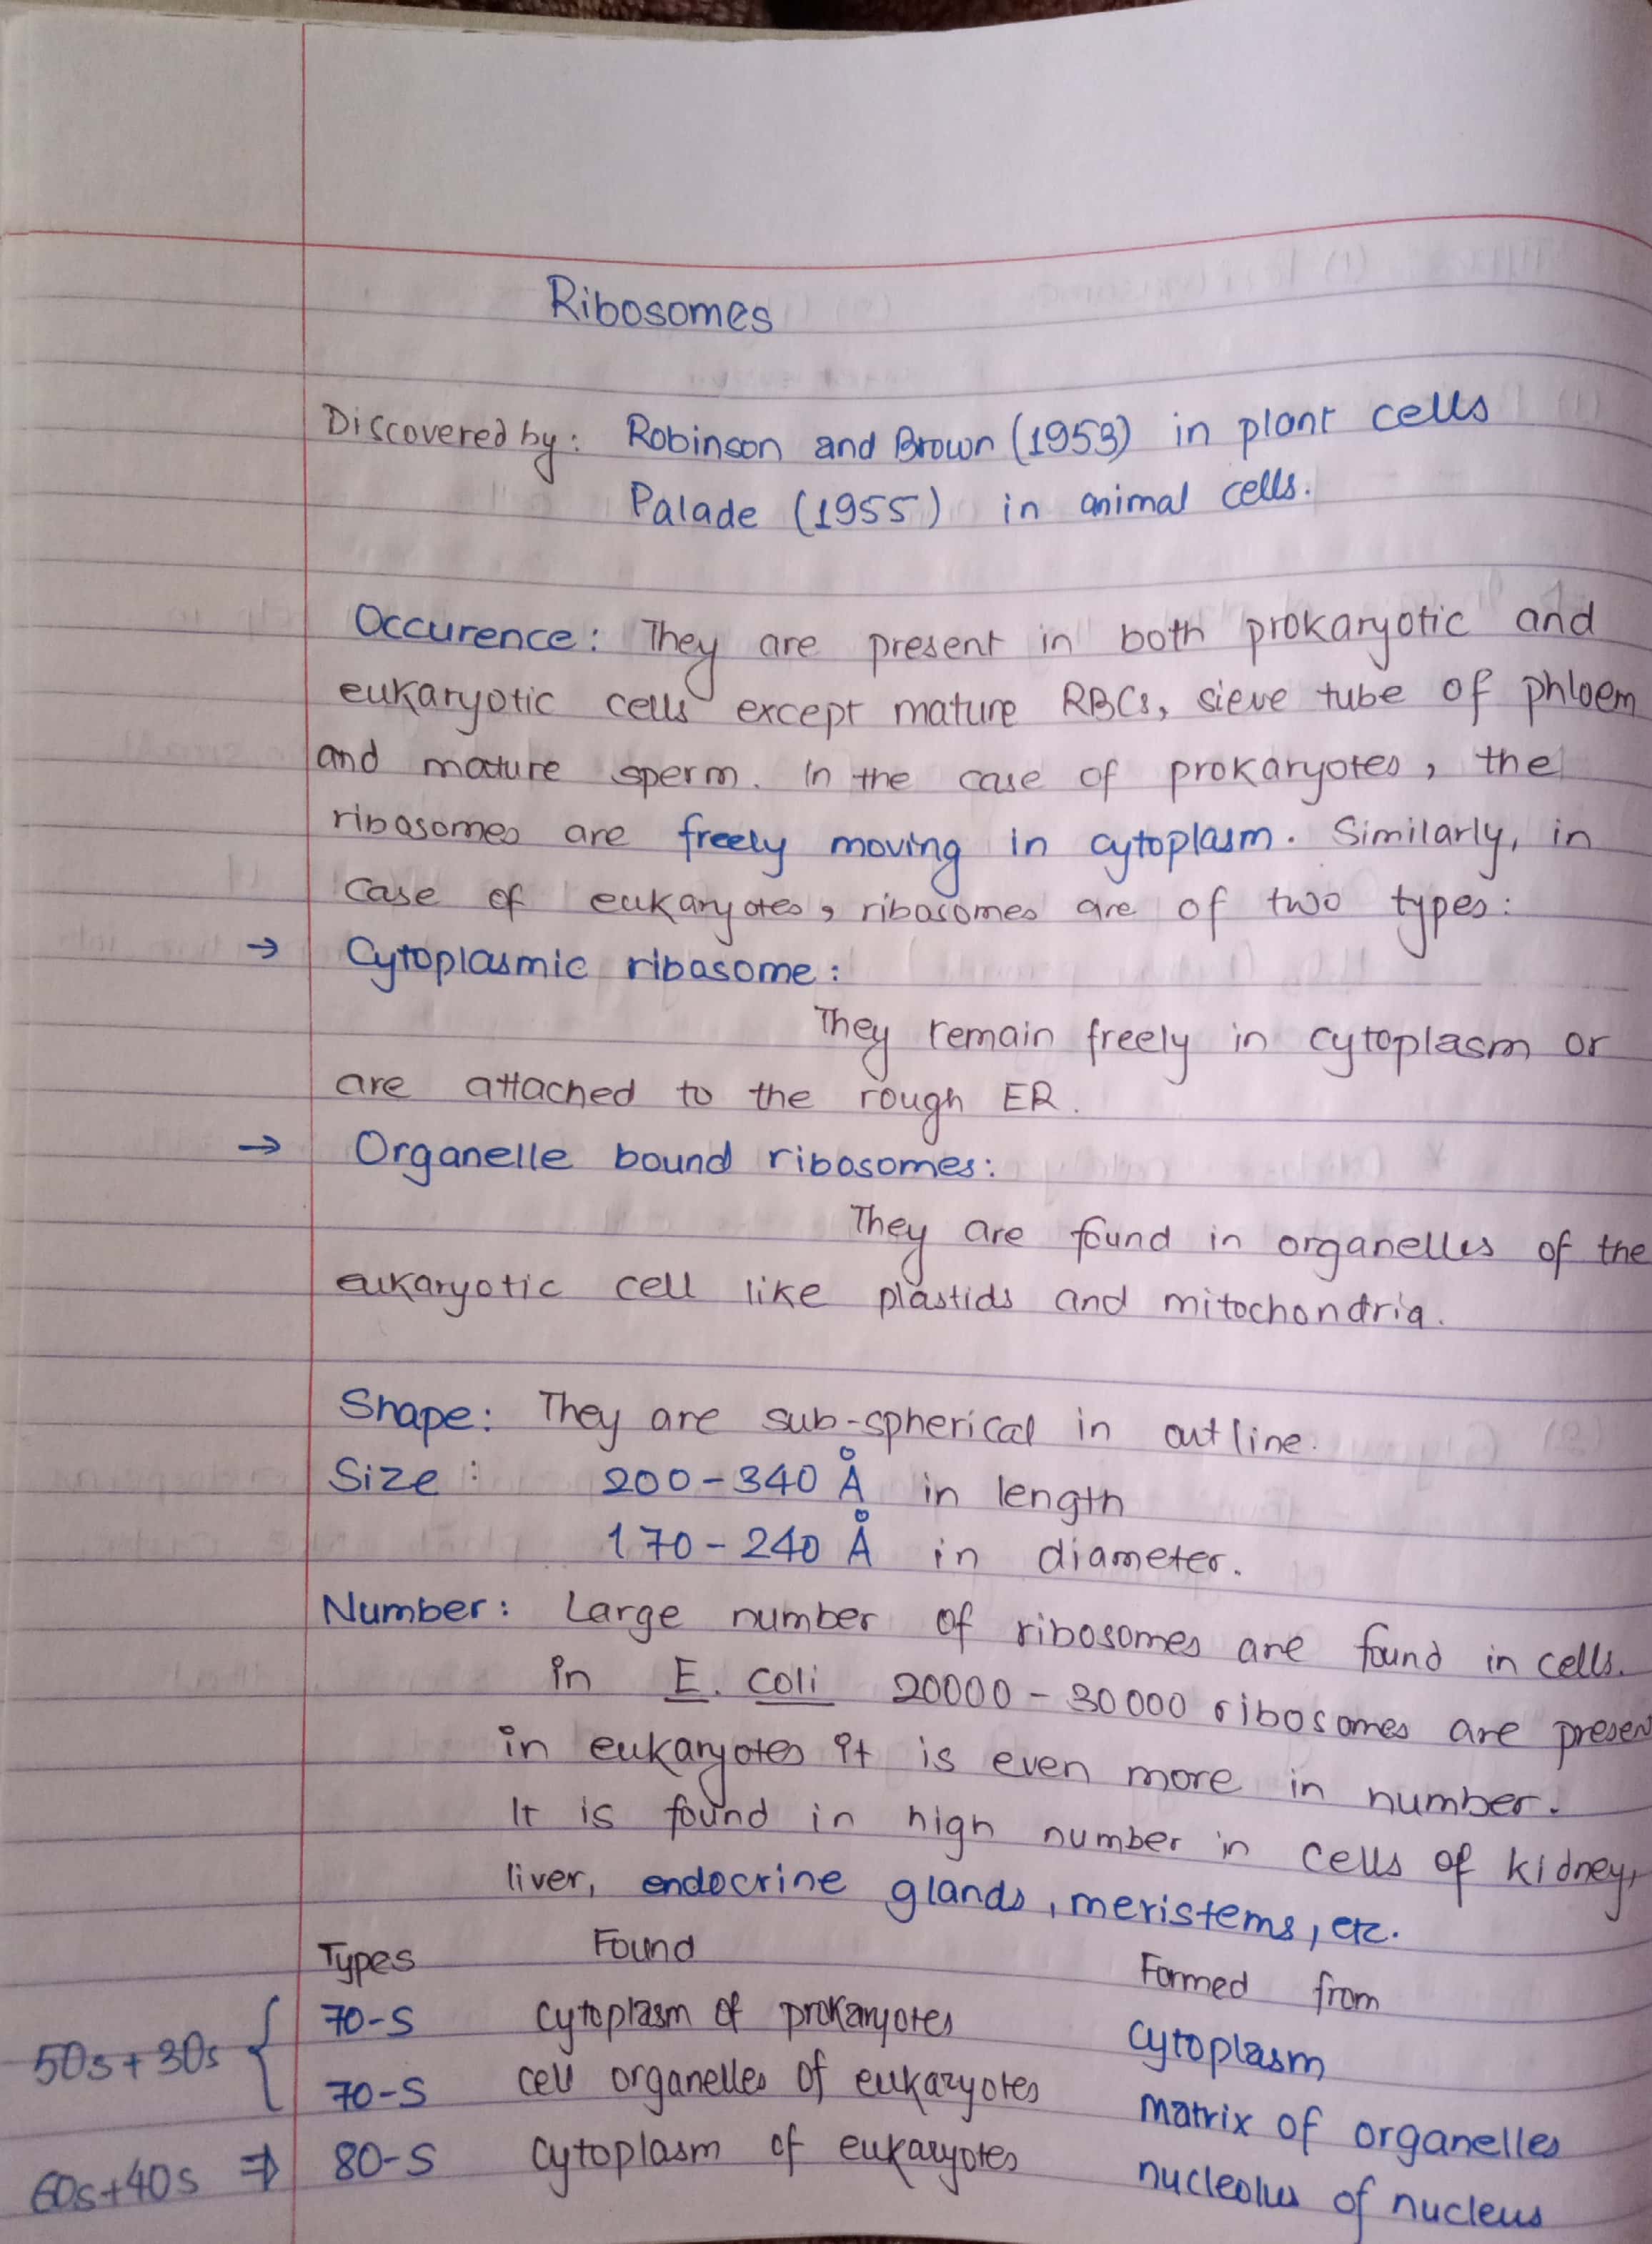 Ribosomes
Discovered by: Robinson and Brown (1953) in plant cells
Palade (1955) in animal cells.
Occurence: They are present in both prokaryotic and
eukaryotic cells except mature RBCs, sieve tube of phloem
and mature sperm. In the case of prokaryotes, the
ribosomes are freely moving in cytoplasm. Similarly, in
case of eukaryotes, ribosomes are of two types:
→ Cytoplasmic ribosome:
They remain freely in cytoplasm or
are attached to the rough ER.
→ Organelle bound ribosomes:
They are found in organelles of the
eukaryotic cell like plastids and mitochondria.
Shape: They are sub-spherical in outline.
Size: 200-340 Å in length
170-240 Å in diameter.
Number: Large number of ribosomes are found in cells.
in E. coli 20000-30000 ribosomes are presen
in eukaryotes it is even more in number.
It is found in high number in cells of kidney,
liver, endocrine glands, meristems, etc.
Types Found Formed from
50s+30s { 70-S cytoplasm of prokaryotes cytoplasm
70-S cell organelles of eukaryotes matrix of organelles
60s+40s ⇒ 80-S cytoplasm of eukaryotes nucleolus of nucleus